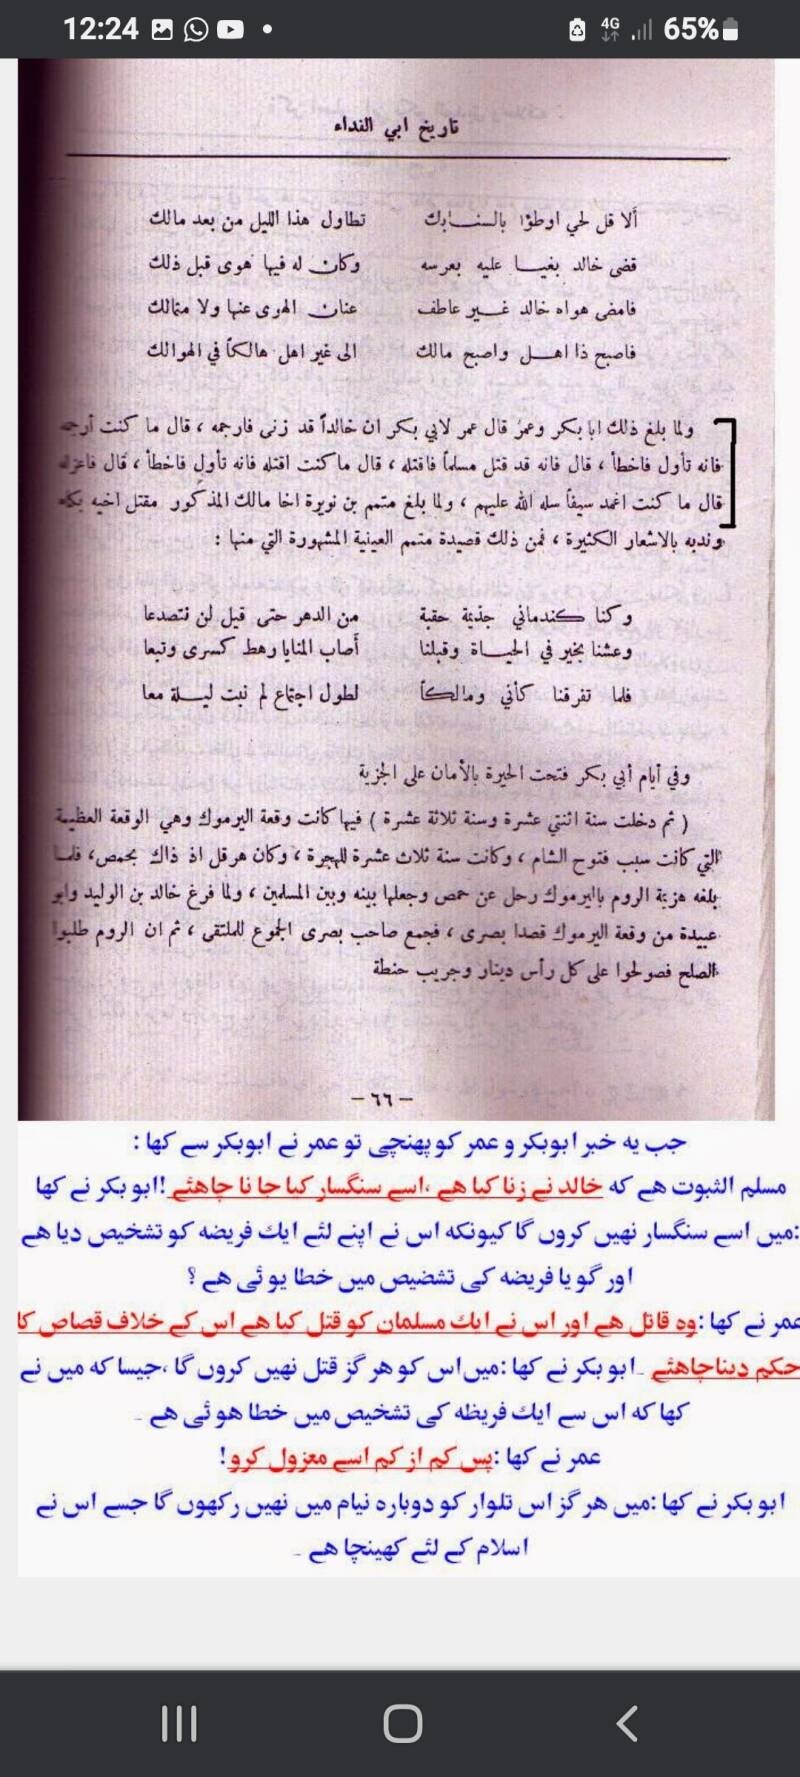 12:24
4G
65%
تاريخ ابي الفداء
ألا قل لحي اوطؤا بالسنابك تطاول هذا الليل من بعد مالك
قضى خالد بغيا عليه بعرسه وكان له فيها هوى قبل ذلك
فامضى هواه خالد غير عاطف عنان الهوى عنها ولا متمالك
فاصبح ذا اهل واصبح مالك الى غير اهل هالكاً في الهوالك
ولما بلغ ذلك ابا بكر وعمر قال عمر لابي بكر ان خالداً قد زنى فارجمه ، قال ما كنت أرجمه
فانه تأول فاخطأ ، قال فانه قد قتل مسلماً فاقتله ، قال ما كنت اقتله فانه تأول فاخطأ ، قال فاعزله
قال ما كنت اغمد سيفاً سله الله عليهم ، ولما بلغ متمم بن نويرة اخا مالك المذكور مقتل اخيه بكاه
وندبه بالاشعار الكثيرة ، فمن ذلك قصيدة متمم العينية المشهورة التي منها :
وكنا كندماني جذيمة حقبة من الدهر حتى قيل لن نتصدعا
وعشنا بخير في الحياة وقبلنا أصاب المنايا رهط كسرى وتبعا
فلما تفرقنا كأني ومالكاً لطول اجتماع لم نبت ليلة معا
وفي أيام أبي بكر فتحت الحيرة بالأمان على الجزية
( ثم دخلت سنة اثنتي عشرة وسنة ثلاثة عشرة ) فيها كانت وقعة اليرموك وهي الوقعة العظيمة
التي كانت سبب فتوح الشام ، وكانت سنة ثلاث عشرة للهجرة ، وكان هرقل اذ ذاك بحمص ، فلما
بلغه هزيمة الروم باليرموك رحل عن حمص وجعلها بينه وبين المسلمين ، ولما فرغ خالد بن الوليد وابو
عبيدة من وقعة اليرموك قصدا بصرى ، فجمع صاحب بصرى الجموع للملتقى ، ثم ان الروم طلبوا
الصلح فصولحوا على كل رأس دينار وجريب حنطة
— ٦٦ —
جب یہ خبر ابوبکر و عمر کو پهنچی تو عمر نے ابوبکر سے کہا :
مسلم الثبوت ھے کہ خالد نے زنا کیا ھے ،اسے سنگسار کیا جا نا چاھئے !ابو بکر نے کہا
:میں اسے سنگسار نھیں کروں گا کیونکہ اس نے اپنے لئے ایک فریضہ کو تشخیص دیا ھے
اور گو یا فریضہ کی تشضیص میں خطا یو ئی ھے ؟
عمر نے کہا :وہ قاتل ھے اور اس نے ایک مسلمان کو قتل کیا ھے اس کے خلاف قصاص کا
حکم دینا چاھئے ۔ابو بکر نے کہا :میں اس کو ھر گز قتل نھیں کروں گا ،جیسا کہ میں نے
کہا کہ اس سے ایک فریظہ کی تشخیص میں خطا ھو ئی ھے ۔
عمر نے کہا :پس کم از کم اسے معزول کرو!
ابو بکر نے کہا :میں ھر گز اس تلوار کو دوبارہ نیام میں نھیں رکھوں گا جسے اس نے
اسلام کے لئے کھینچا ھے ۔